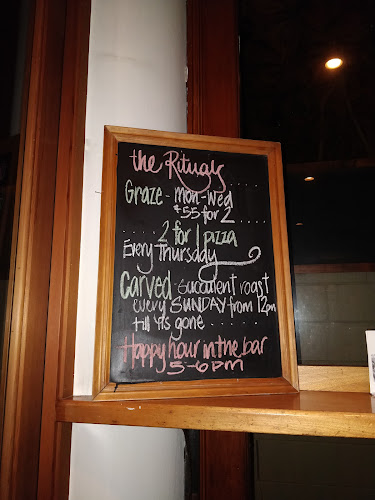 the Rituals
Graze - mon-wed
$55 for 2
2 for 1 pizza
Every Thursday
Carved - succulent roast
every SUNDAY from 12pm
till 'tis gone
Happy hour in the bar
5-6pm